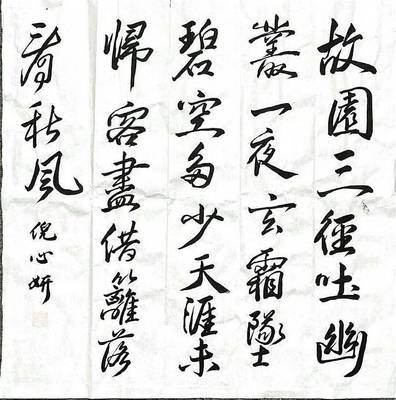 故園三徑吐幽
叢一夜玄霜墜
碧空多少天涯未
歸客盡借籬落
看秋風
倪心妍